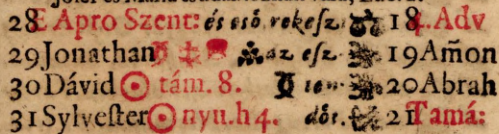 28 E Apro Szent: és eső. rekesz. 18 f. Adv
29 Jonathan az esz. 19 Am̃on
30 Dávid tám. 8. ten. 20 Abrah
31 Sylveſter nyu. h 4. dőt. 21 Tamá: